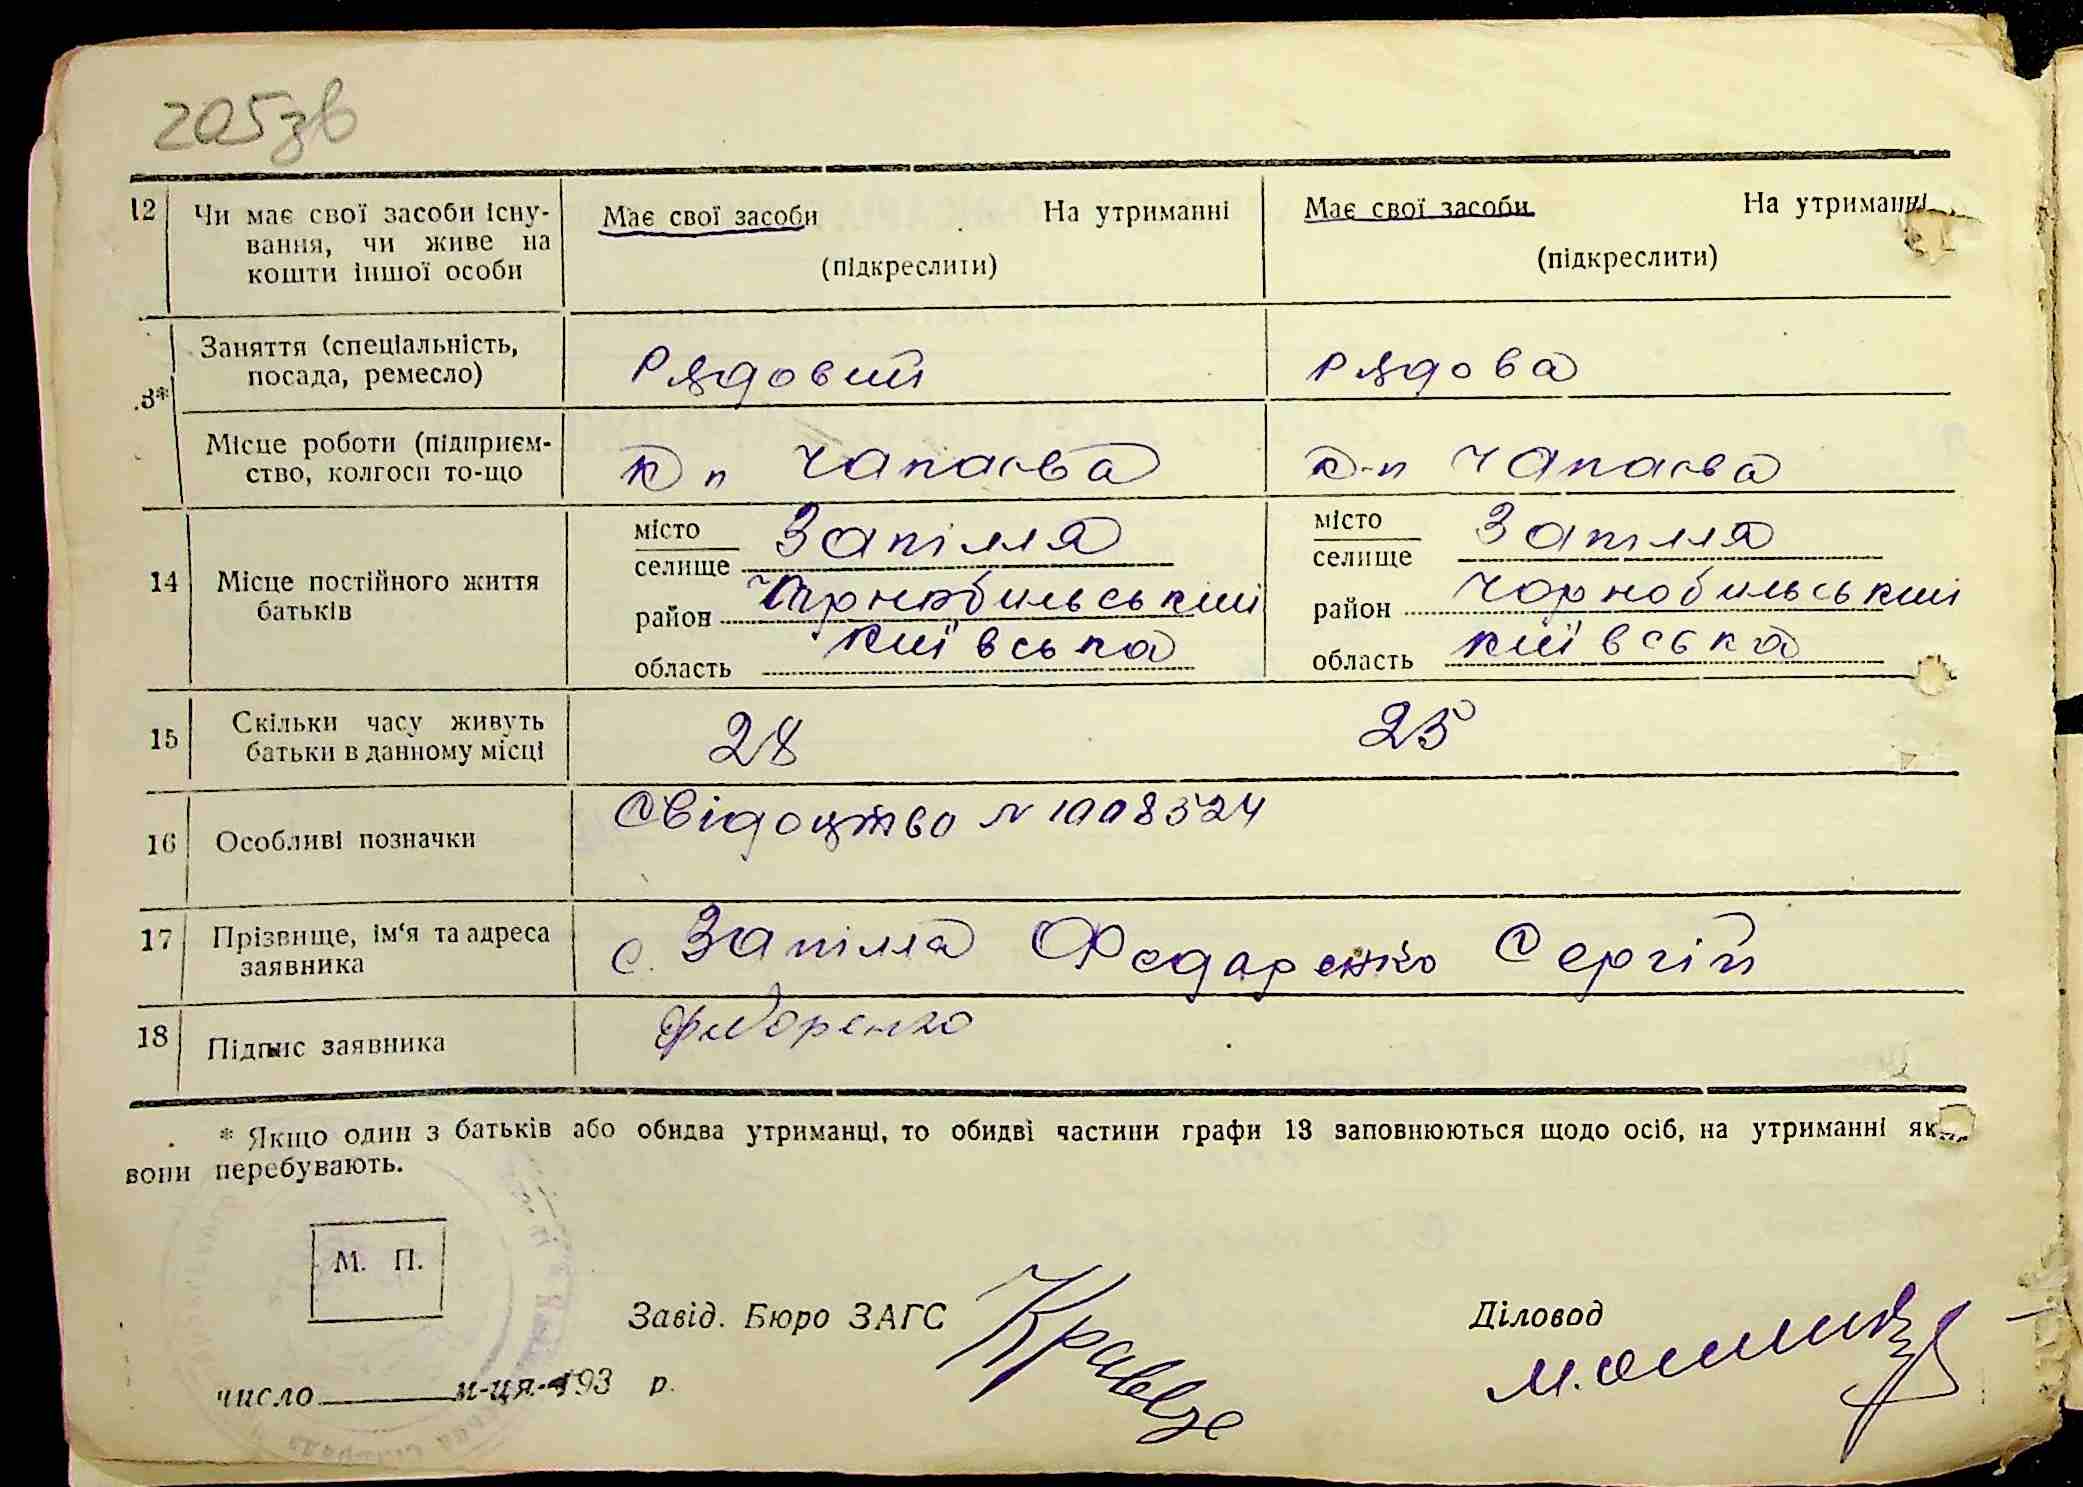 205зв
12 Чи має свої засоби існу-
вання, чи живе на
кошти іншої особи
Має свої засоби На утриманні
(підкреслити)
Має свої засоби На утриманні
(підкреслити)
3*
Заняття (спеціальність,
посада, ремесло)
Рядовий
Рядова
Місце роботи (підприєм-
ство, колгосп то-що
к п Чапаєва
к-п Чапаєва
14 Місце постійного життя
батьків
місто
селище Запілля
район Чорнобильський
область Київська
місто
селище Запілля
район Чорнобильський
область Київська
15 Скільки часу живуть
батьки в данному місці
28
25
16 Особливі позначки
Свідоцтво N 1008524
17 Прізвище, ім'я та адреса
заявника
с. Запілля Федаренко Сергій
18 Підпис заявника
Федоренко
* Якщо один з батьків або обидва утриманці, то обидві частини графи 13 заповнюються щодо осіб, на утриманні яких
вони перебувають.
М. П.
Завід. Бюро ЗАГС
Діловод
число м-ця 193 р.